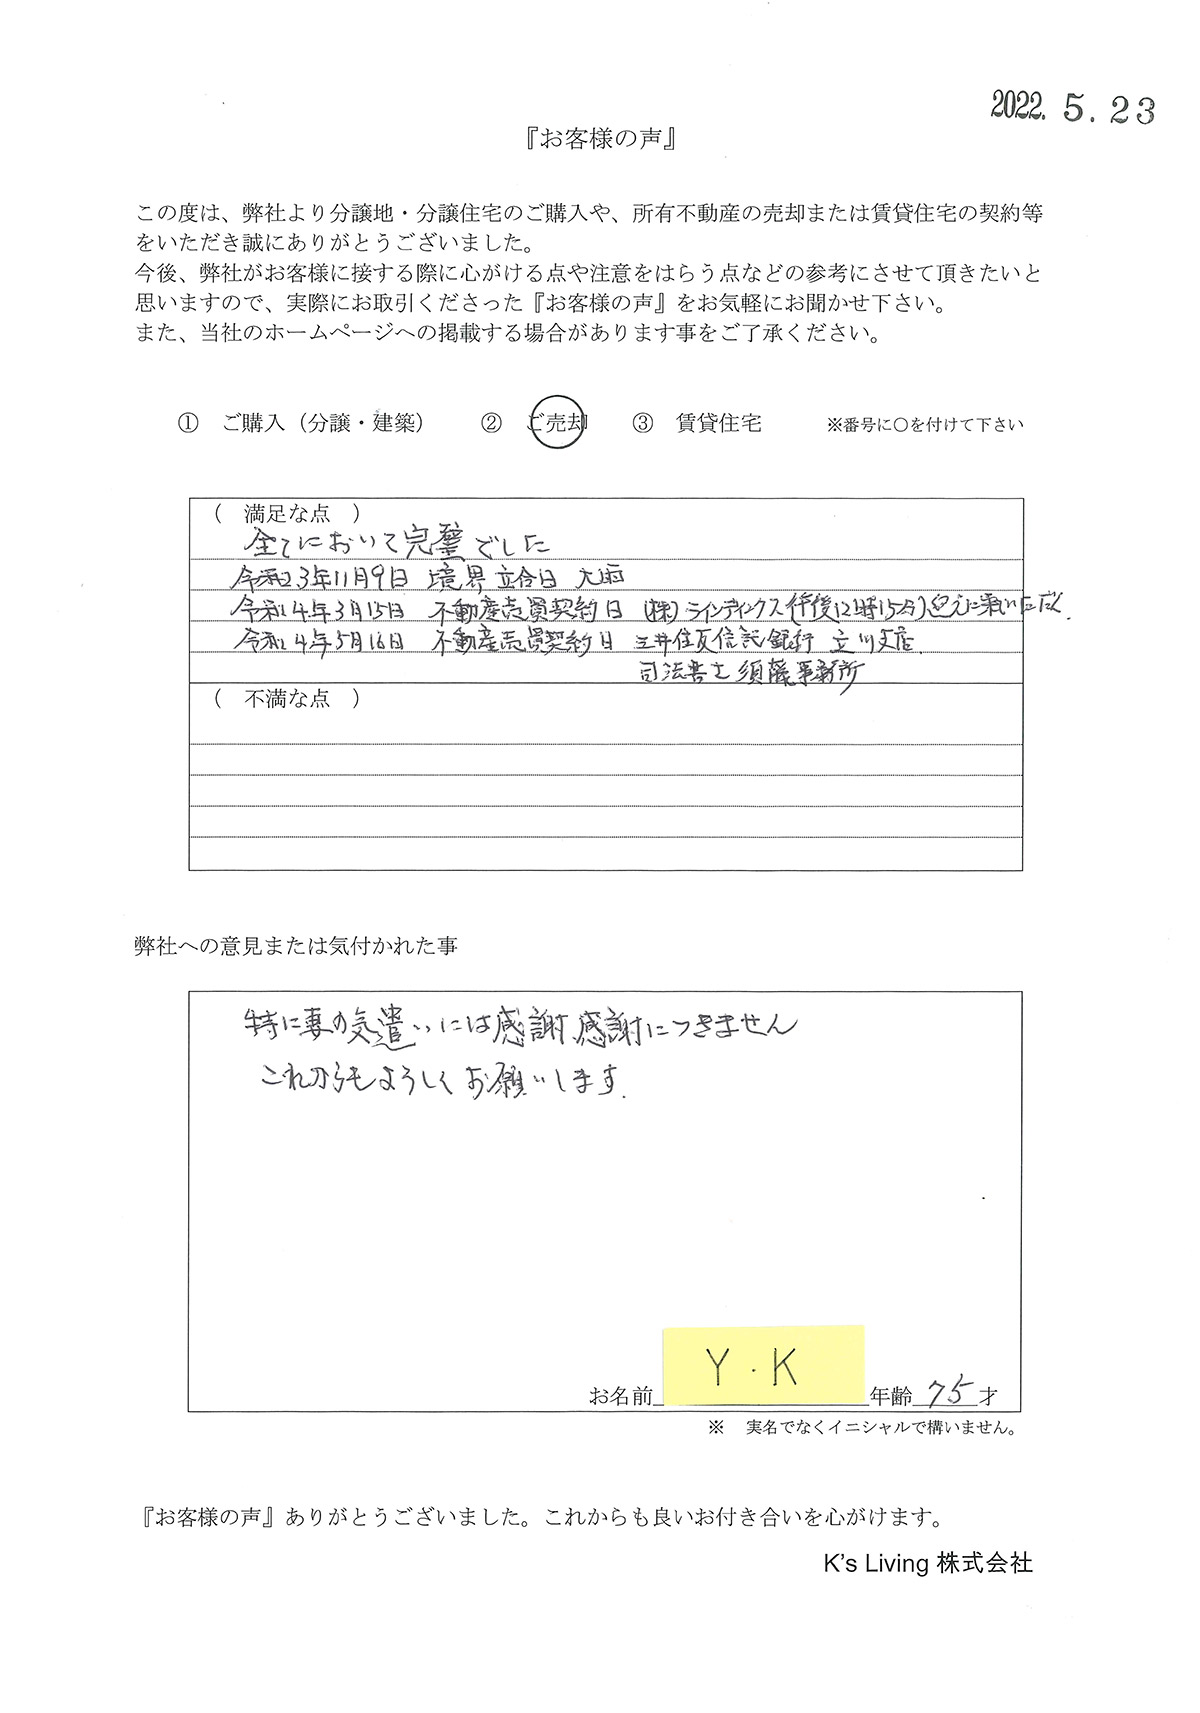 2022. 5. 23
『お客様の声』
この度は、弊社より分譲地・分譲住宅のご購入や、所有不動産の売却または賃貸住宅の契約等
をいただき誠にありがとうございました。
今後、弊社がお客様に接する際に心がける点や注意をはらう点などの参考にさせて頂きたいと
思いますので、実際にお取引くださった『お客様の声』をお気軽にお聞かせ下さい。
また、当社のホームページへの掲載する場合があります事をご了承ください。
① ご購入（分譲・建築） ② ご売却 ③ 賃貸住宅 ※番号に○を付けて下さい
（ 満足な点 ）
全てにおいて完璧でした
令和3年11月9日 境界立合日 大雨
令和4年3月15日 不動産売買契約日 (株)ランディックス(午後12時15分)迎えに来ていただく.
令和4年5月16日 不動産売買契約日 三井住友信託銀行 立川支店.
司法書士 須藤事務所
（ 不満な点 ）
弊社への意見または気付かれた事
特に妻の気遣いには感謝、感謝につきません
これからもよろしくお願いします.
お名前 Y・K 年齢 75 才
※ 実名でなくイニシャルで構いません。
『お客様の声』ありがとうございました。これからも良いお付き合いを心がけます。
K's Living 株式会社